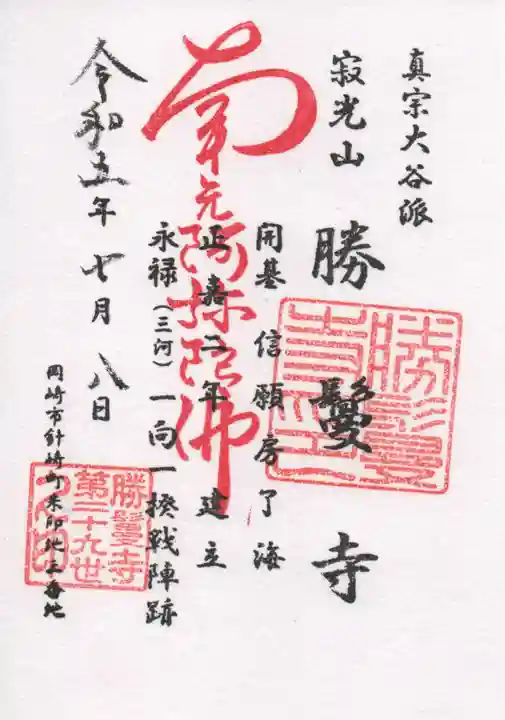 真宗大谷派
寂光山
勝鬘寺
開基 信願房了海
正嘉二年 建立
永禄(三河)一向一揆戦陣跡
南無阿弥陀佛
令和五年 七月 八日
岡崎市針崎町朱印地三番地
勝鬘寺
第二十九世